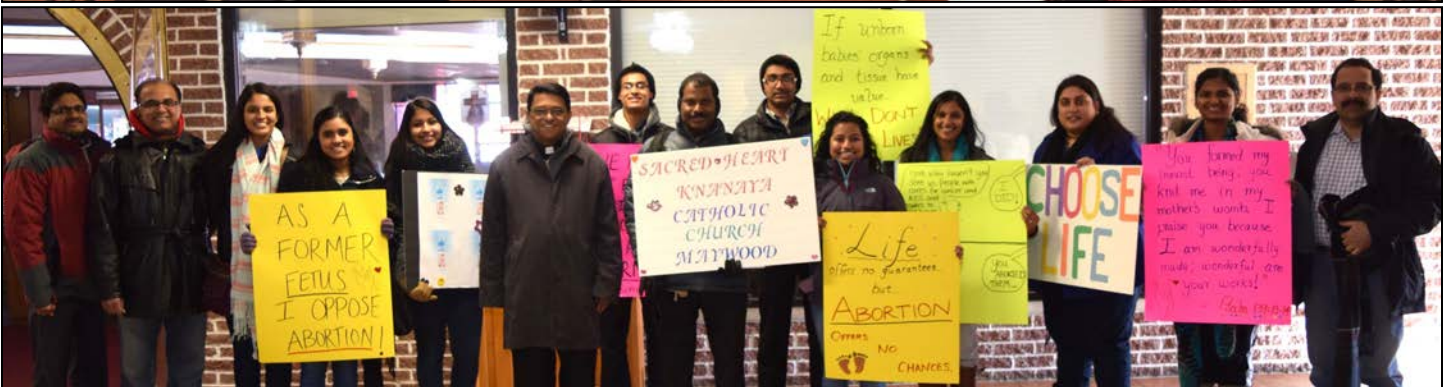 AS A
FORMER
FETUS
I OPPOSE
ABORTION!
SACRED HEART
KNANAYA
CATHOLIC
CHURCH
MAYWOOD
If unborn
babies' organs
and tissue have
value..
DON'T
LIVES
Life
offers no guarantees
but...
ABORTION
OFFERS
NO
CHANCES.
I DID!
YOU
ABORTED
THEM...
CHOOSE
LIFE
You formed my
inmost being; you
knit me in my
mother's womb. I
praise you because
I am wonderfully
made; wonderful are
your works!"